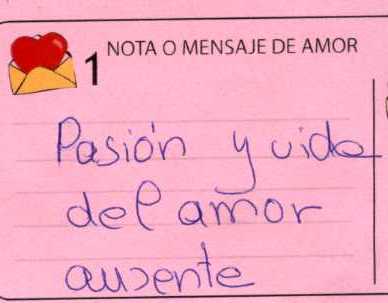 1 NOTA O MENSAJE DE AMOR
Pasión y vida
del amor
ausente